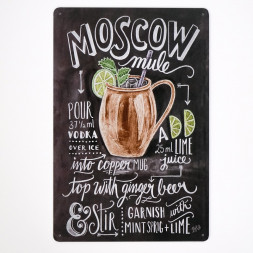 MOSCOW
mule
POUR
37½ ml
VODKA
OVER ICE
ADD
25ml LIME
juice
into copper MUG
top with ginger beer
& Stir
GARNISH with
MINT SPRIG + LIME